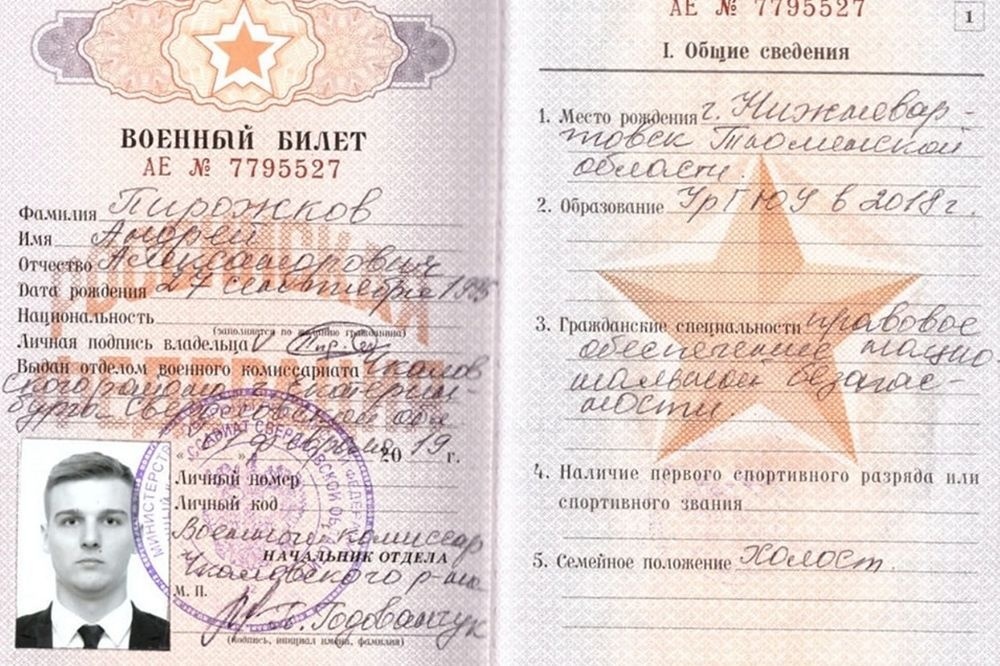 ВОЕННЫЙ БИЛЕТ
АЕ № 7795527
Фамилия Пирожков
Имя Андрей
Отчество Александрович
Дата рождения 27 сентября 1995
Национальность
(заполняется по желанию гражданина)
Личная подпись владельца
Выдан отделом военного комиссариата Чкалов
ского района г. Екатерин-
бурга Свердловской обл
февраля 2019 г.
Личный номер
Личный код
Военный комиссар
НАЧАЛЬНИК ОТДЕЛА
Чкаловского р-на
М. П.
Годованчук
(подпись, инициал имени, фамилия)
АЕ № 7795527
1
I. Общие сведения
1. Место рождения г. Нижневар-
товск Тюменской
области
2. Образование УрГЮУ в 2018 г.
3. Гражданские специальности правовое
обеспечение нацио
нальной безопас-
ности.
4. Наличие первого спортивного разряда или
спортивного звания
5. Семейное положение Холост.